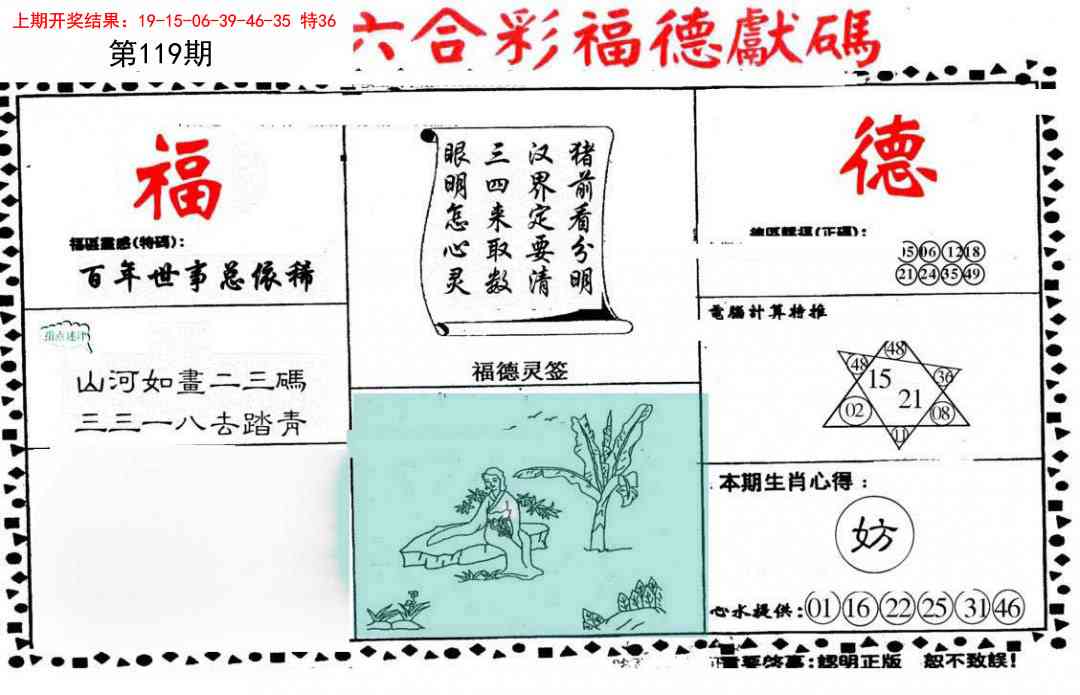 上期开奖结果：19-15-06-39-46-35 特36
第119期
六合彩福德獻碼
福
福區靈感(特碼)：
百年世事总依稀
山河如畫二三碼
三三一八去踏青
猪前看分明
汉界定要清
三四来取数
眼明怎心灵
福德灵签
德
(正碼)：
05 06 12 18
21 24 35 49
電腦計算特推
48
48 15 36
21
02 08
11
本期生肖心得：
妨
心水提供：01 16 22 25 31 46
重要啓事：認明正版 恕不致誤！